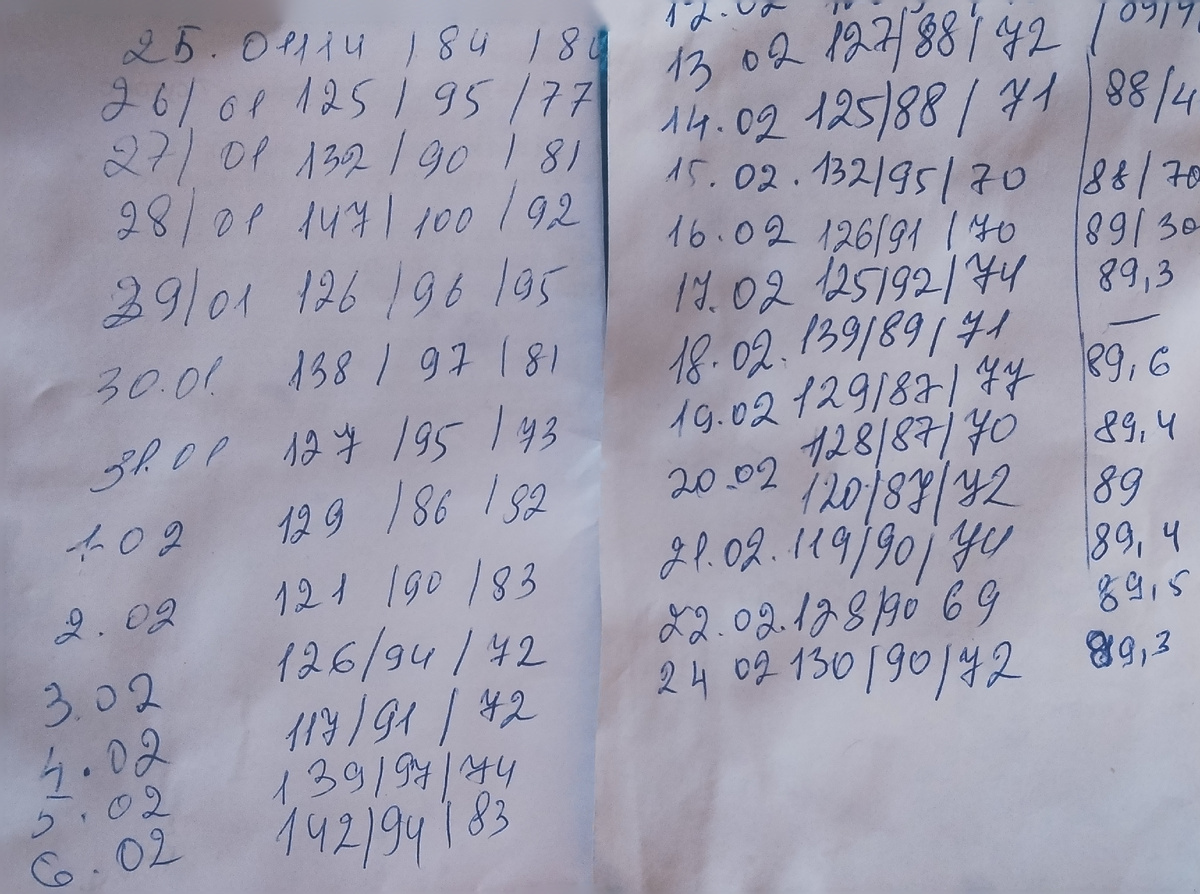 25.01 114 / 84 /
26/ 01 125 / 95 / 77
27/ 01 132 / 90 / 81
28/ 01 147 / 100 / 92
29/01 126 / 96 / 95
30.01. 138 / 97 / 81
31.01 127 / 95 / 73
1.02 129 / 86 / 92
2.02 121 / 90 / 83
3.02 126/94 / 72
4.02 117/91 / 72
5.02 139/97/74
6.02 142/94 / 83
12.02
13 02 127/88/ 72
14.02 125/88 / 71 88/4
15.02. 132/95/70 88/70
16.02 126/91 /70 89/30
17.02 125/92/74 89,3
18.02. 139/89/71 —
19.02 129/87/77 89,6
128/87/70 89,4
20.02 120/87/72 89
21.02. 119/90/74 89,4
22.02. 128/90 69 89,5
24 02 130/90/72 89,3